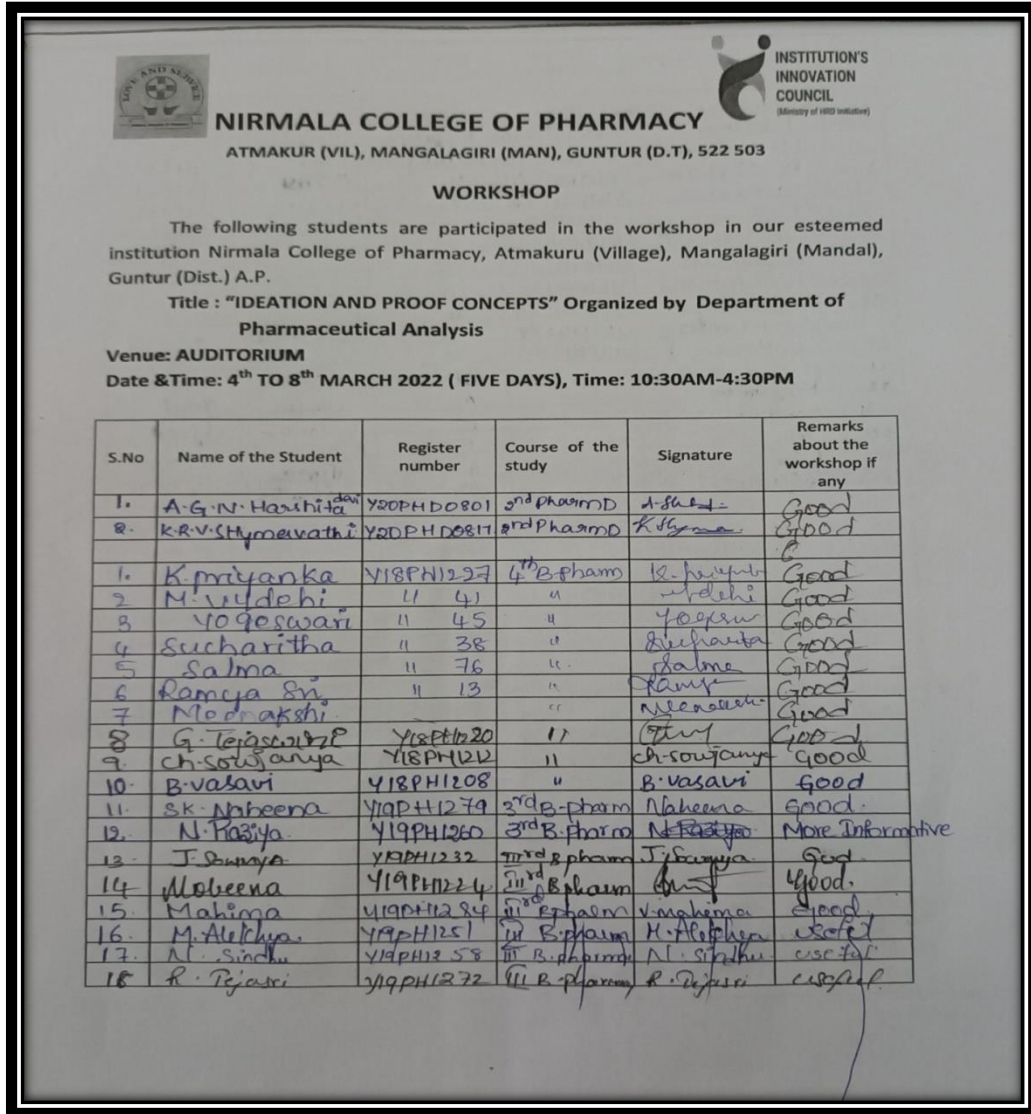 LOVE AND SERVE
INSTITUTION'S
INNOVATION
COUNCIL
(Ministry of HRD Initiative)
NIRMALA COLLEGE OF PHARMACY
ATMAKUR (VIL), MANGALAGIRI (MAN), GUNTUR (D.T), 522 503
WORKSHOP
The following students are participated in the workshop in our esteemed
institution Nirmala College of Pharmacy, Atmakuru (Village), Mangalagiri (Mandal),
Guntur (Dist.) A.P.
Title : "IDEATION AND PROOF CONCEPTS" Organized by Department of
Pharmaceutical Analysis
Venue: AUDITORIUM
Date &Time: 4th TO 8th MARCH 2022 ( FIVE DAYS), Time: 10:30AM-4:30PM
S.No Name of the Student Register number Course of the study Signature Remarks about the workshop if any
1. A.G.N. Harshita devi Y20PHD0801 2nd PharmD Good
2. K.R.V.SHymavathi Y20PHD0817 2nd PharmD K Shyma Good
1. K.priyanka Y18PH1227 4th B.pharm K. Good
2 M. Vydehi " 41 " Good
3 Yogeswari " 45 " Good
4 Sucharitha " 38 " Sucharita Good
5 Salma " 76 " Salma Good
6 Ramya Sri " 13 " Ramya Good
7 Meenakshi " Good
8 G. Y18PH1220 " Good
9. Ch.sowjanya Y18PH1212 " ch.sowjanya Good
10. B.vasavi Y18PH1208 " B.vasavi Good
11. SK. Naheena Y19PH1279 3rd B-pharm Naheena Good.
12. N.Raziya. Y19PH1260 3rd B.pharm More Informative
13. J. Y19PH1232 IIIrd B pharm J. Good
14 Mobeena Y19PH1224 IIIrd B pharm Good.
15. Mahima Y19PH1284 IIIrd B pharm V.mahima Good,
16. M. Alekhya. Y19PH1251 III B.pharm M. Alekhya useful
17. N. Sindhu Y19PH1258 III B.pharm N. Sindhu useful
18 R. Tejasri Y19PH1272 III B-pharm R. Tejasri useful.